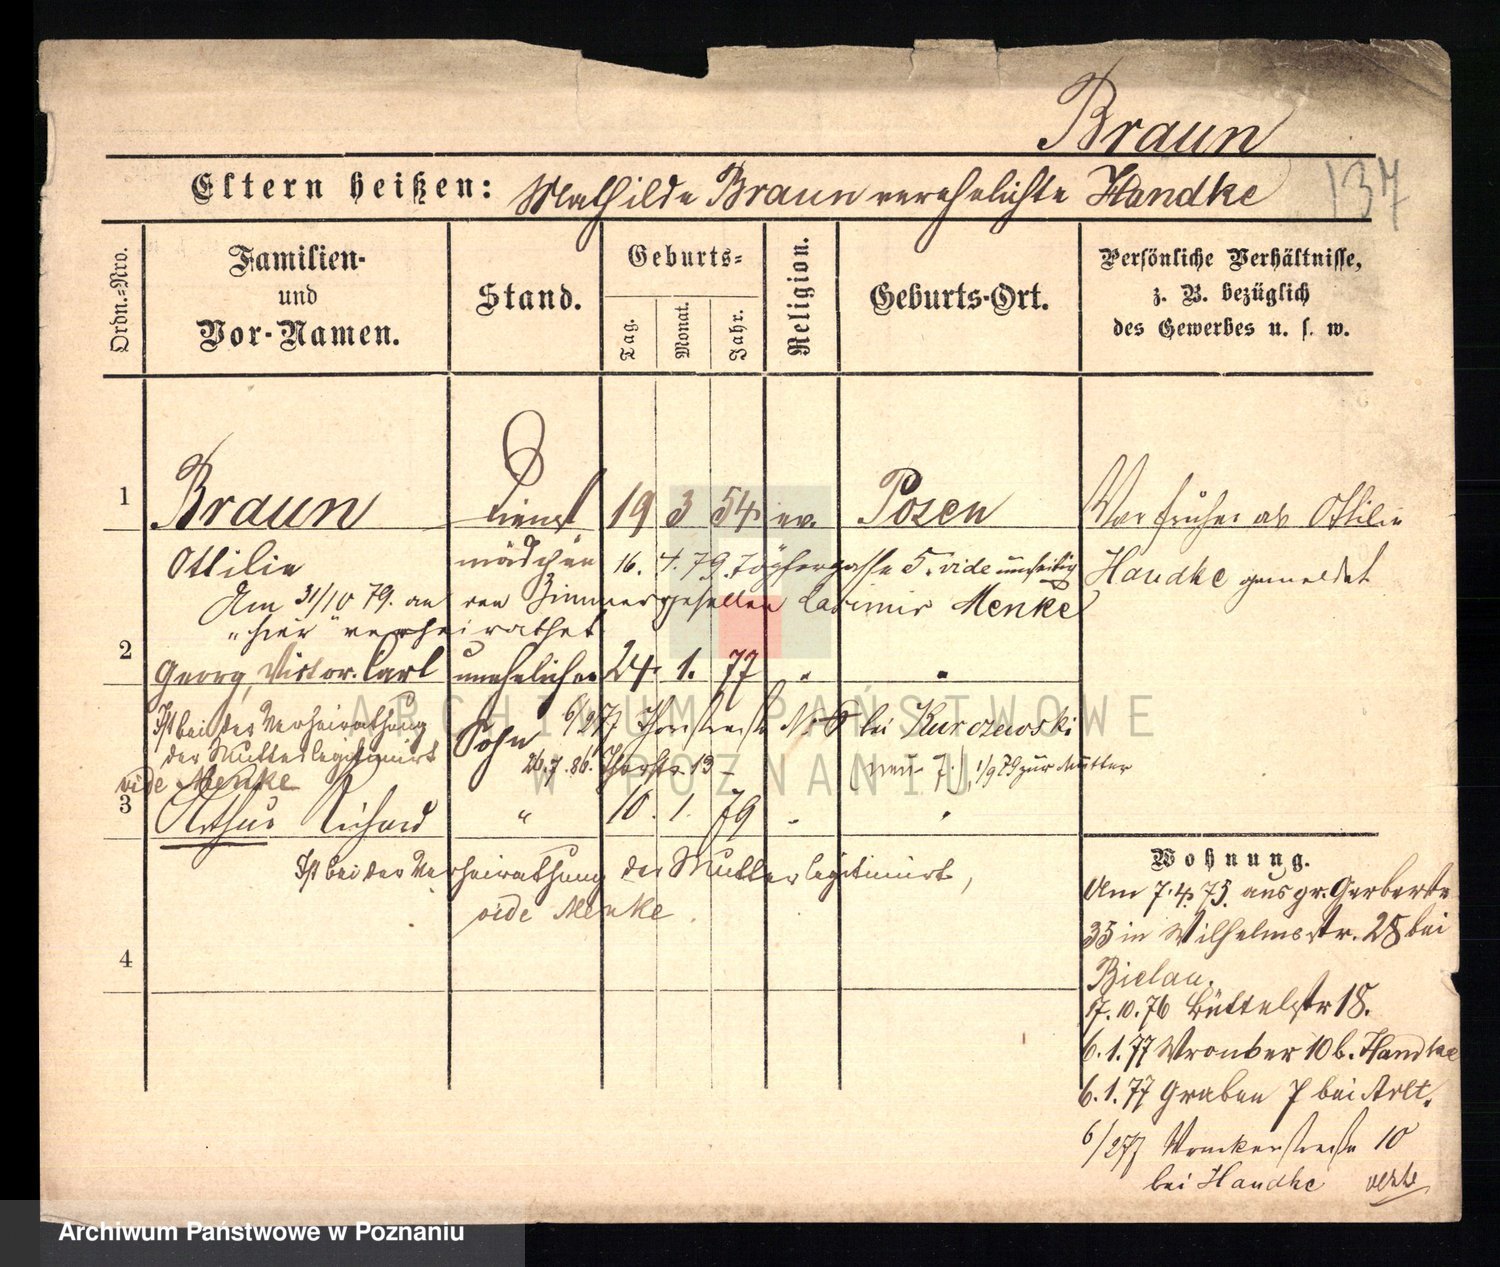 Braun
Eltern heißen: Mathilde Braun verehelichte Handke
137
Ordn.-Nro.
Familien- und Vor-Namen.
Stand.
Geburts-
Tag.
Monat.
Jahr.
Religion.
Geburts-Ort.
Persönliche Verhältnisse, z. B. bezüglich des Gewerbes u. s. w.
1 Braun Dienst 19 3 54 ev. Posen War früher als Ottilie
Ottilie mädchen 16. 4. 79. Töpfergasse 5. vide umseitig Handke gemeldet
Am 31/10 79. an den Zimmergesellen Casimir Menke
"hier" verheirathet
2 Georg, Victor Carl unehelicher 24. 1. 77 " "
Ist bei der Verheirathung Sohn 6/2 77 Thorstraße No bei Kurczewski
der Mutter legitimirt 26.7.86. Thorstr 13 - 1/9 79 zur Mutter
vide Menke
3 Arthur Richard " 10. 1. 79 " "
Ist bei der Verheirathung der Mutter legitimirt,
vide Menke.
4
Wohnung.
Am 7.4.75. aus gr. Gerberstr
35 in Wilhelmsstr. 28 bei
Bielau.
17.10.76 Büttelstr 18.
6.1.77 Wronker 10 b. Handke
6.1.77 Graben 7 bei Arlt.
6/2 77 Wronkerstraße 10
bei Handke
ARCHIWUM PAŃSTWOWE
W POZNANIU
Archiwum Państwowe w Poznaniu